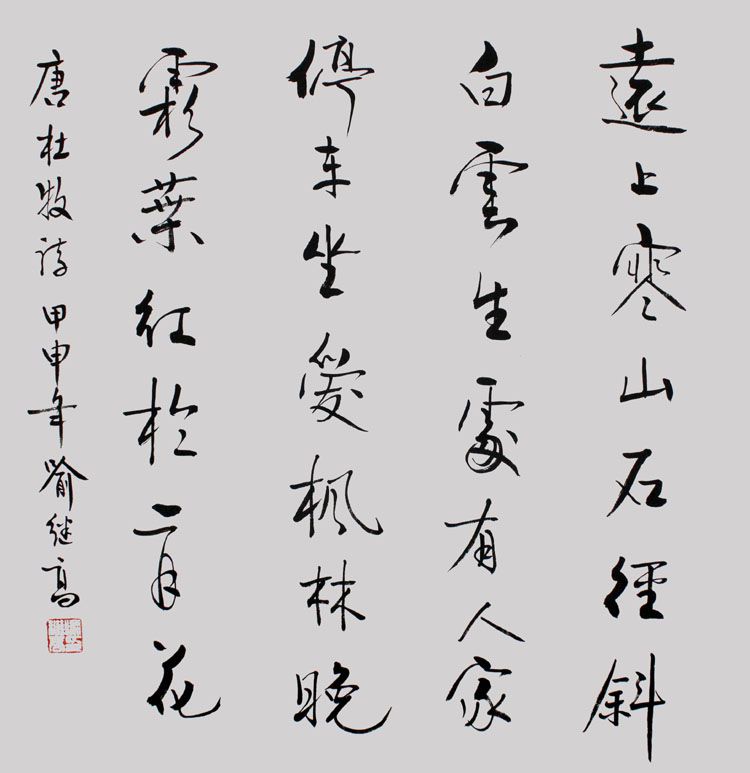 遠上寒山石徑斜
白雲生處有人家
停车坐愛楓林晚
霜葉红於二月花
唐杜牧诗 甲申年 喻继高